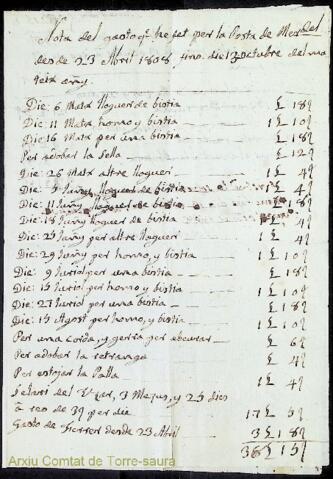 Nota del gasto q. he fet per la Posta de Mercadal
desde 23 Abril 1808 fins die 13 octubre del ma
teix añy.
Die: 6 Matx lloguer de bistia £ 18q
Die: 11 Matx homo y bistia 1 £ 10q
Die: 16 Matx per una bistia £ 18q
Per adobar la sella £ 12q
Die: 26 Matx altre llogueri 1 £ 4q
Die: 5 Juñy lloguer de bistia 1 £ 4q
Die: 11 Juñy lloguer de bistia £ 18q
Die: 18 Juñy lloguer de bistia 4q
Die: 25 Juñy per altre llogueri 1 £ 4q
Die: 29 Juñy per homo, y bistia 1 £ 10q
Die: 9 Juriol per una bistia £ 18q
Die: 15 Juriol per homo y bistia 1 £ 10q
Die: 27 Juriol per una bistia £ 18q
Die: 15 Agost per homo, y bistia 1 £ 10q
Per una corda, y gerra per abeurar £ 6q
Per adobar la retranga £ 4q
Per estojar la Palla 1 £ 4q
Salari del 3 Mesus, y 25 dies
a reo de 3q per die 17 £ 5q
Gasto de Ferrer desde 23 Abril 3 £ 18q
38 £ 15q
Arxiu Comtat de Torre-saura